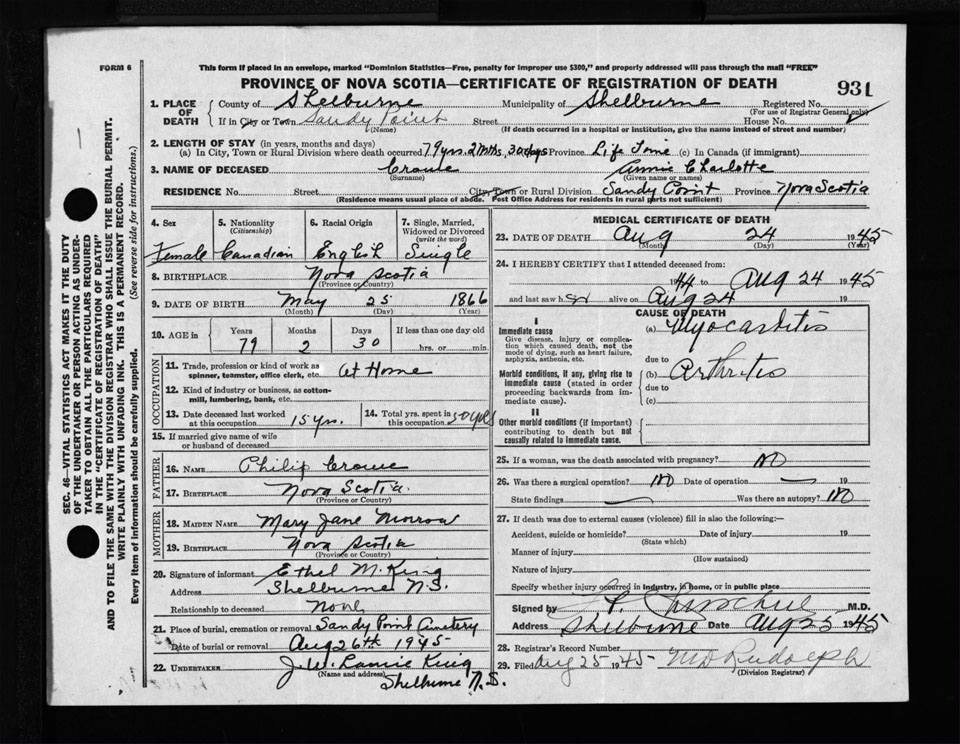 FORM 6
This form if placed in an envelope, marked "Dominion Statistics—Free, penalty for improper use $300," and properly addressed will pass through the mail "FREE"
PROVINCE OF NOVA SCOTIA—CERTIFICATE OF REGISTRATION OF DEATH
931
SEC. 46—VITAL STATISTICS ACT MAKES IT THE DUTY
OF THE UNDERTAKER OR PERSON ACTING AS UNDER-
TAKER TO OBTAIN ALL THE PARTICULARS REQUIRED
IN THE "CERTIFICATE OF REGISTRATION OF DEATH"
AND TO FILE THE SAME WITH THE DIVISION REGISTRAR WHO SHALL ISSUE THE BURIAL PERMIT.
WRITE PLAINLY WITH UNFADING INK. THIS IS A PERMANENT RECORD.
Every item of information should be carefully supplied. (See reverse side for instructions.)
1. PLACE OF DEATH
County of Shelburne Municipality of Shelburne Registered No.
(For use of Registrar General only)
If in City or Town Sandy Point Street House No.
(Name) (If death occurred in a hospital or institution, give the name instead of street and number)
2. LENGTH OF STAY (in years, months and days)
(a) In City, Town or Rural Division where death occurred 79 yrs. 2 Mths, 30 days Province Life Time (c) In Canada (if immigrant)
3. NAME OF DECEASED Crowe Annie Charlotte
(Surname) (Given name or names)
RESIDENCE No. Street City, Town or Rural Division Sandy Point Province Nova Scotia
(Residence means usual place of abode. Post Office Address for residents in rural parts not sufficient)
4. Sex 5. Nationality (Citizenship) 6. Racial Origin 7. Single, Married, Widowed or Divorced (write the word)
Female Canadian English Single
8. BIRTHPLACE Nova Scotia
(Province or Country)
9. DATE OF BIRTH May 25 1866
(Month) (Day) (Year)
10. AGE in Years Months Days If less than one day old
79 2 30 hrs. or min.
OCCUPATION
11. Trade, profession or kind of work as spinner, teamster, office clerk, etc. At Home
12. Kind of industry or business, as cotton-mill, lumbering, bank, etc.
13. Date deceased last worked at this occupation 15 yrs.
14. Total yrs. spent in this occupation 50 yrs
15. If married give name of wife or husband of deceased
FATHER
16. NAME Philip Crowe
17. BIRTHPLACE Nova Scotia
(Province or Country)
MOTHER
18. MAIDEN NAME Mary Jane Morrow
19. BIRTHPLACE Nova Scotia
(Province or Country)
20. Signature of informant Ethel M. King
Address Shelburne N.S.
Relationship to deceased None
21. Place of burial, cremation or removal Sandy Point Cemetery
Date of burial or removal Aug 26th 1945
22. UNDERTAKER J.W. King
(Name and address) Shelburne N.S.
MEDICAL CERTIFICATE OF DEATH
23. DATE OF DEATH Aug 24 1945
(Month) (Day) (Year)
24. I HEREBY CERTIFY that I attended deceased from:
1944 to Aug 24 1945
and last saw her alive on Aug 24 19
CAUSE OF DEATH
I
Immediate cause (a) Myocarditis
Give disease, injury or complication which caused death, not the mode of dying, such as heart failure, asphyxia, asthenia, etc.
due to
Morbid conditions, if any, giving rise to immediate cause (stated in order proceeding backwards from immediate cause).
(b) Arthritis
due to
(c)
II
Other morbid conditions (if important) contributing to death but not causally related to immediate cause.
25. If a woman, was the death associated with pregnancy? No
26. Was there a surgical operation? No Date of operation 19
State findings Was there an autopsy? No
27. If death was due to external causes (violence) fill in also the following:—
Accident, suicide or homicide? Date of injury 19
(State which)
Manner of injury
(How sustained)
Nature of injury
Specify whether injury occurred in industry, in home, or in public place
Signed by M.D.
Address Shelburne Date Aug 25 1945
28. Registrar's Record Number
29. Filed Aug 25 1945 M D Rudolph
(Division Registrar)